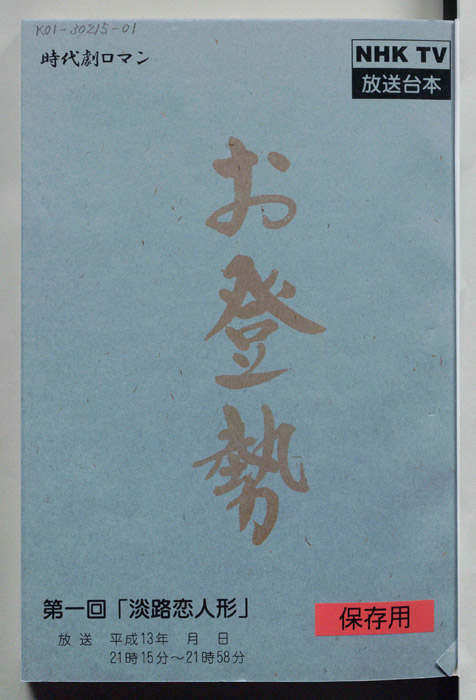 K01-30215-01
時代劇ロマン
NHK TV
放送台本
お登勢
第一回「淡路恋人形」
放送 平成13年 月 日
21時15分～21時58分
保存用